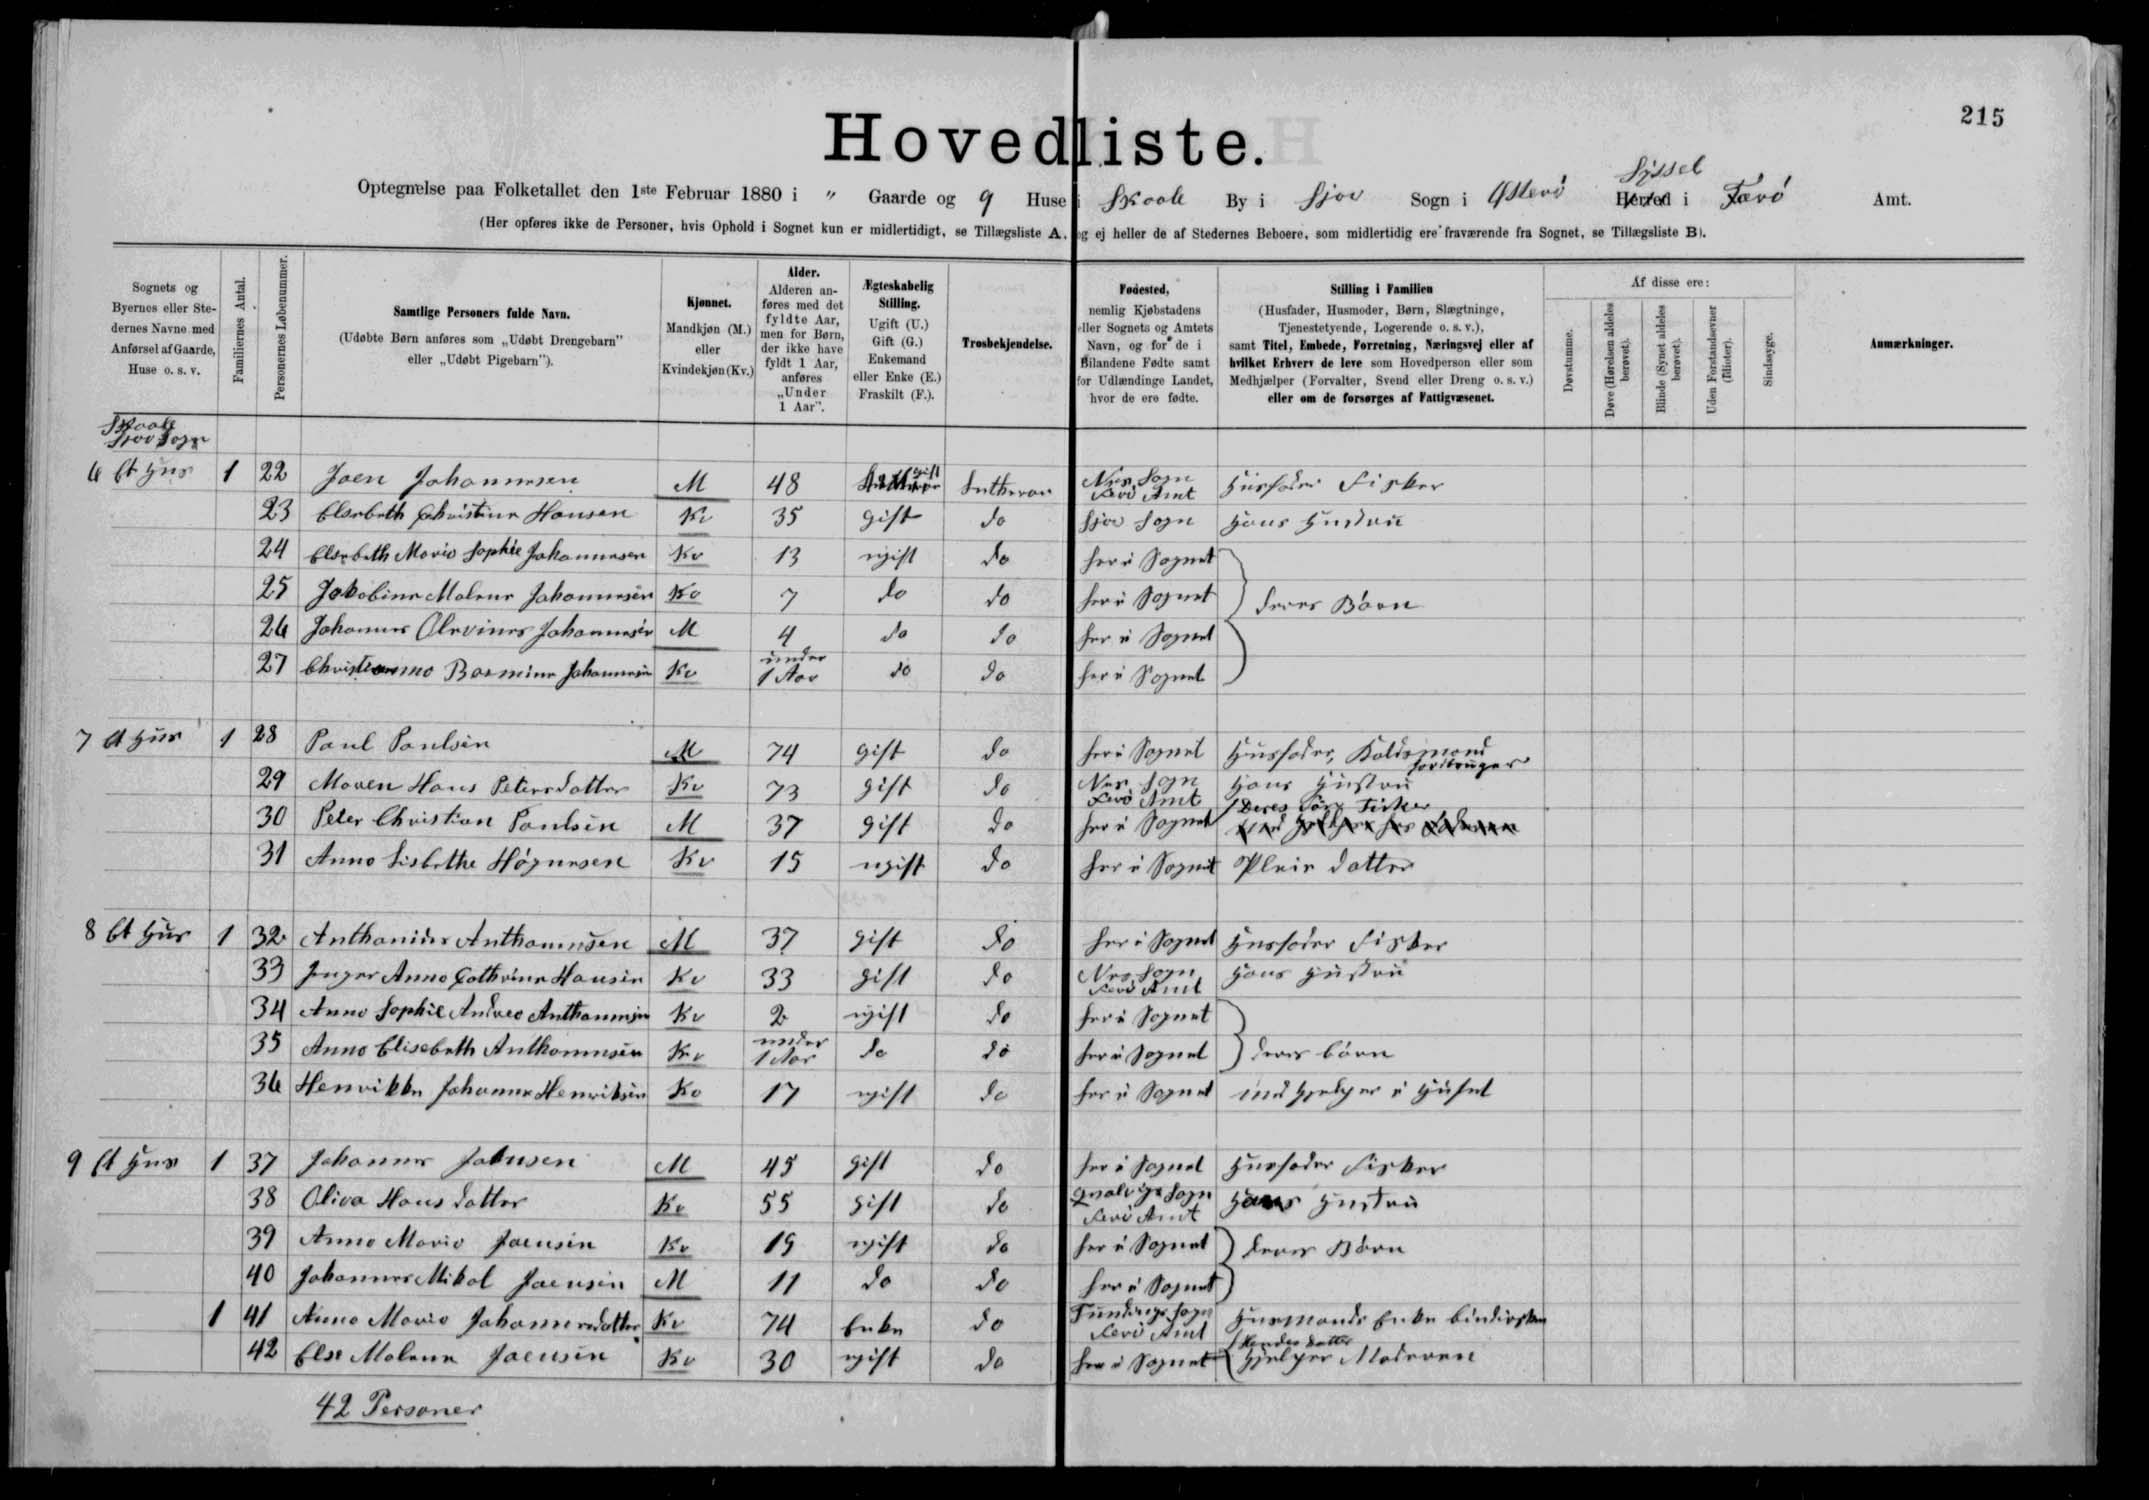 215
Hovedliste.
Optegnelse paa Folketallet den 1ste Februar 1880 i " Gaarde og 9 Huse i Skaale By i Sjov Sogn i Østerö Herred i Færö Amt.
Syssel
(Her opføres ikke de Personer, hvis Ophold i Sognet kun er midlertidigt, se Tillægsliste A, og ej heller de af Stedernes Beboere, som midlertidig ere fraværende fra Sognet, se Tillægsliste B).
Sognets og Byernes eller Stedernes Navne med Anførsel af Gaarde, Huse o. s. v.
Familiernes Antal.
Personernes Løbenummer.
Samtlige Personers fulde Navn.
(Udøbte Børn anføres som „Udøbt Drengebarn" eller „Udøbt Pigebarn").
Kjønnet.
Mandkjøn (M.) eller Kvindekjøn (Kv.)
Alder.
Alderen anføres med det fyldte Aar, men for Børn, der ikke have fyldt 1 Aar, anføres „Under 1 Aar".
Ægteskabelig Stilling.
Ugift (U.)
Gift (G.)
Enkemand eller Enke (E.)
Fraskilt (F.).
Trosbekjendelse.
Fødested,
nemlig Kjøbstadens eller Sognets og Amtets Navn, og for de i Bilandene Fødte samt for Udlændinge Landet, hvor de ere fødte.
Stilling i Familien
(Husfader, Husmoder, Børn, Slægtninge, Tjenestetyende, Logerende o. s. v.),
samt Titel, Embede, Forretning, Næringsvej eller af hvilket Erhverv de leve som Hovedperson eller som Medhjælper (Forvalter, Svend eller Dreng o. s. v.)
eller om de forsørges af Fattigvæsenet.
Af disse ere:
Døvstumme.
Døve (Hørelsen aldeles berøvet).
Blinde (Synet aldeles berøvet).
Uden Forstandsevner (Idioter).
Sindssyge.
Anmærkninger.
Skaale
Sjov Sogn
6 Et Huus 1 22 Joen Johannesen M 48 gift Lutheran Nes Sogn Færö Amt Huusfader Fisker
23 Elsebeth Christine Hansen Kv 35 gift do Sjov Sogn Hans Hustru
24 Elsebeth Marie Sophie Johannesen Kv 13 ugift do her i Sognet
25 Jakobine Malene Johannesen Kv 7 do do her i Sognet deres Börn
26 Johannes Johannesen M 4 do do her i Sognet
27 Johannesen Kv under 1 Aar do do her i Sognet
7 Et Huus 1 28 Paul Paulsen M 74 gift do her i Sognet Huusfader,
29 Maren Hans Petersdatter Kv 73 gift do Nes Sogn Færö Amt Hans Hustru
30 Peter Christian Paulsen M 37 gift do her i Sognet Deres Sön Fisker
31 Anna Lisbethe Högnesen Kv 15 ugift do her i Sognet Pleie datter
8 Et Huus 1 32 Anthonius Anthoniusen M 37 gift do her i Sognet Huusfader Fisker
33 Inger Anna Cathrine Hansen Kv 33 gift do Nes Sogn Færö Amt Hans Hustru
34 Anna Sophie Andrea Anthoniusen Kv 2 ugift do her i Sognet
35 Anna Elisebeth Anthoniusen Kv under 1 Aar do do her i Sognet deres börn
36 Henrikke Johanne Henriksen Kv 17 ugift do her i Sognet med Hjelper i Huset
9 Et Huus 1 37 Johannes Joensen M 45 gift do her i Sognet Huusfader Fisker
38 Oliva Hansdatter Kv 55 gift do Qvalvigs Sogn Færö Amt Hans Hustru
39 Anna Marie Joensen Kv 19 ugift do her i Sognet deres Börn
40 Johannes Mikal Joensen M 11 do do her i Sognet
1 41 Anna Marie Johannesdatter Kv 74 Enke do Fundings Sogn Færö Amt Huusmands Enke
42 Else Malene Joensen Kv 30 ugift do her i Sognet Hendes datter Hjelper Moderen
42 Personer